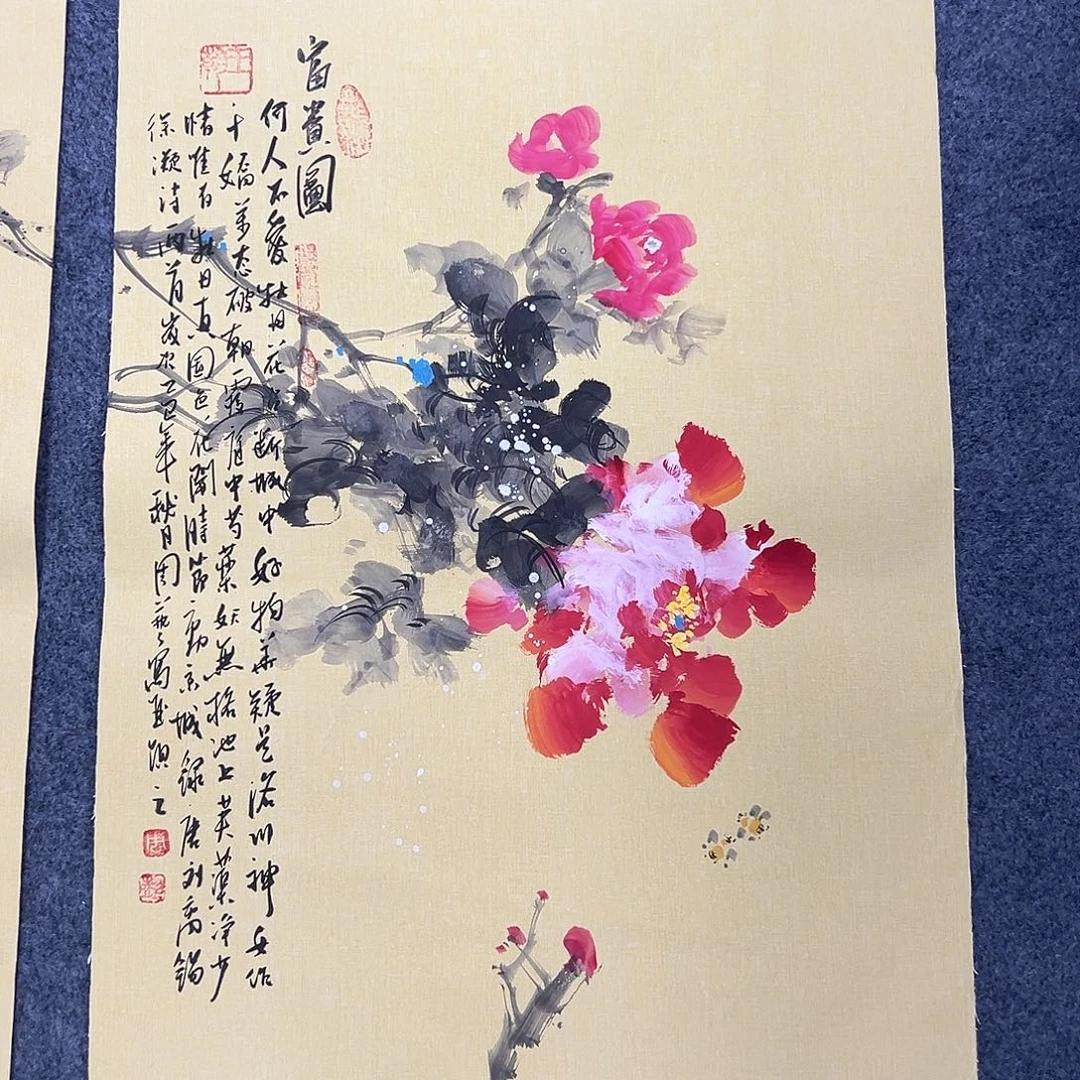 富貴圖
何人不愛牡丹花占断城中好物華疑是洛川神女作
千嬌萬态破朝霞庭中芍藥妖無格池上芙蕖淨少
情惟有牡丹真国色花開時節動京城錄唐刘禹錫
徐凝诗两首岁次乙巳年秋月周寫並題之